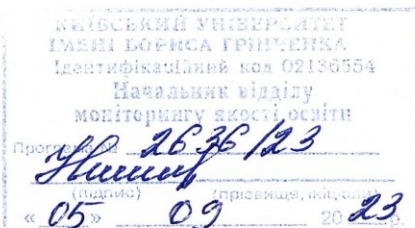 КИЇВСЬКИЙ УНІВЕРСИТЕТ
ІМЕНІ БОРИСА ГРІНЧЕНКА
Ідентифікаційний код 02136554
Начальник відділу
моніторингу якості освіти
Програма № 2636/23
(підпис) (прізвище, ініціали)
« 05 » 09 20 23 р.